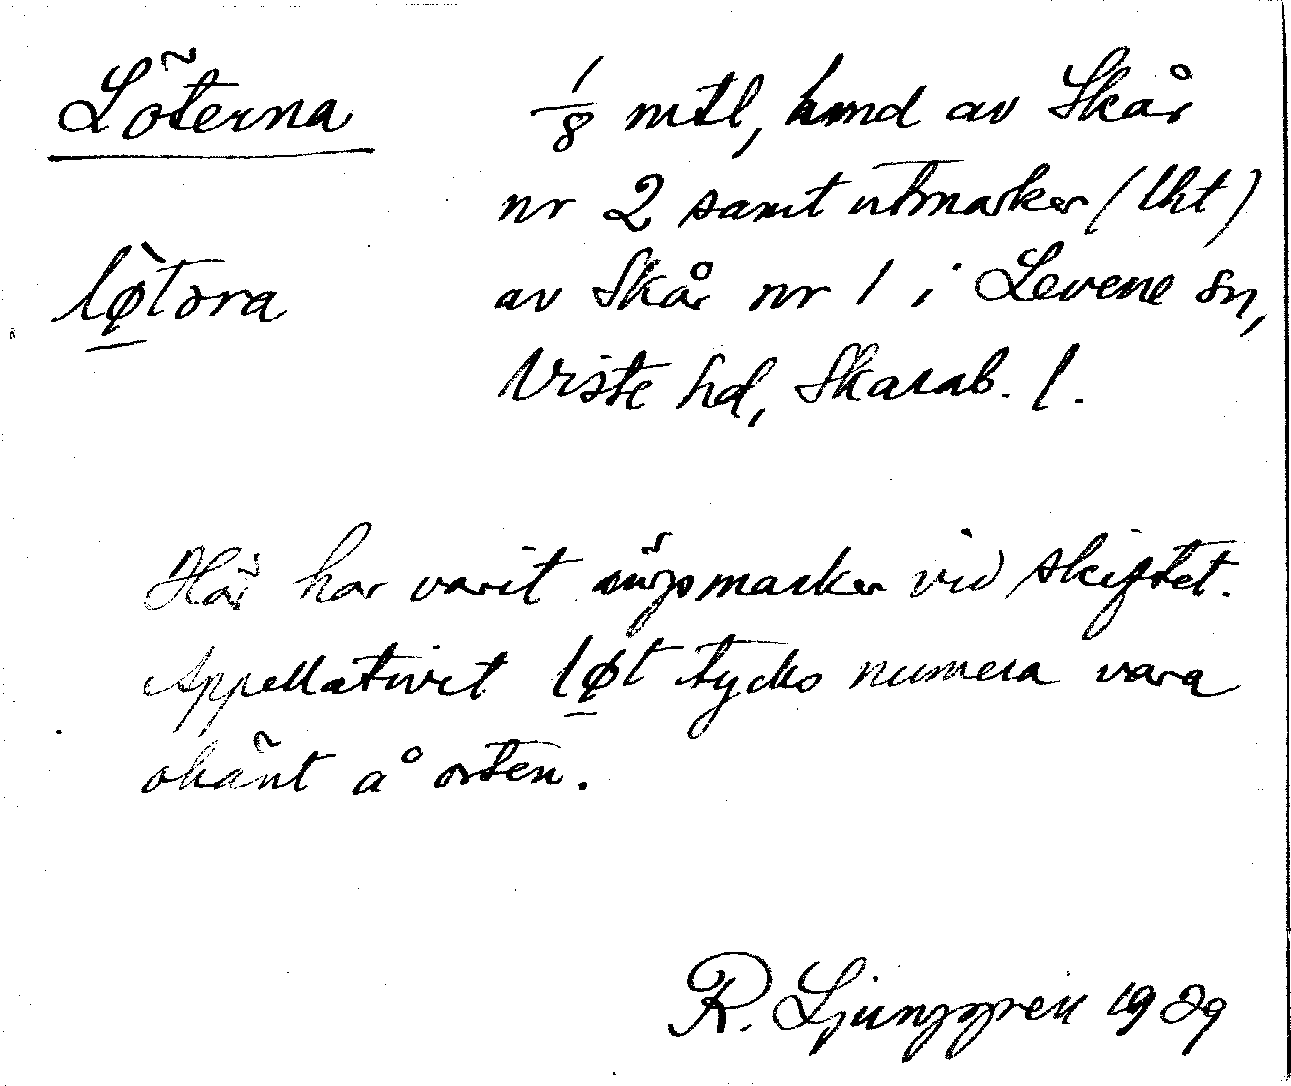 Löterna
1/8 mtl, hmd av Skår
nr 2 samt utmarker (lht)
lø̱̀tora
av Skår nr 1 i Levene sn,
Viste hd, Skarab. l.
Här har varit ängsmarker vid skiftet.
Appellativet lø̱t tycks numera vara
okänt å orten.
R. Ljunggren 1929